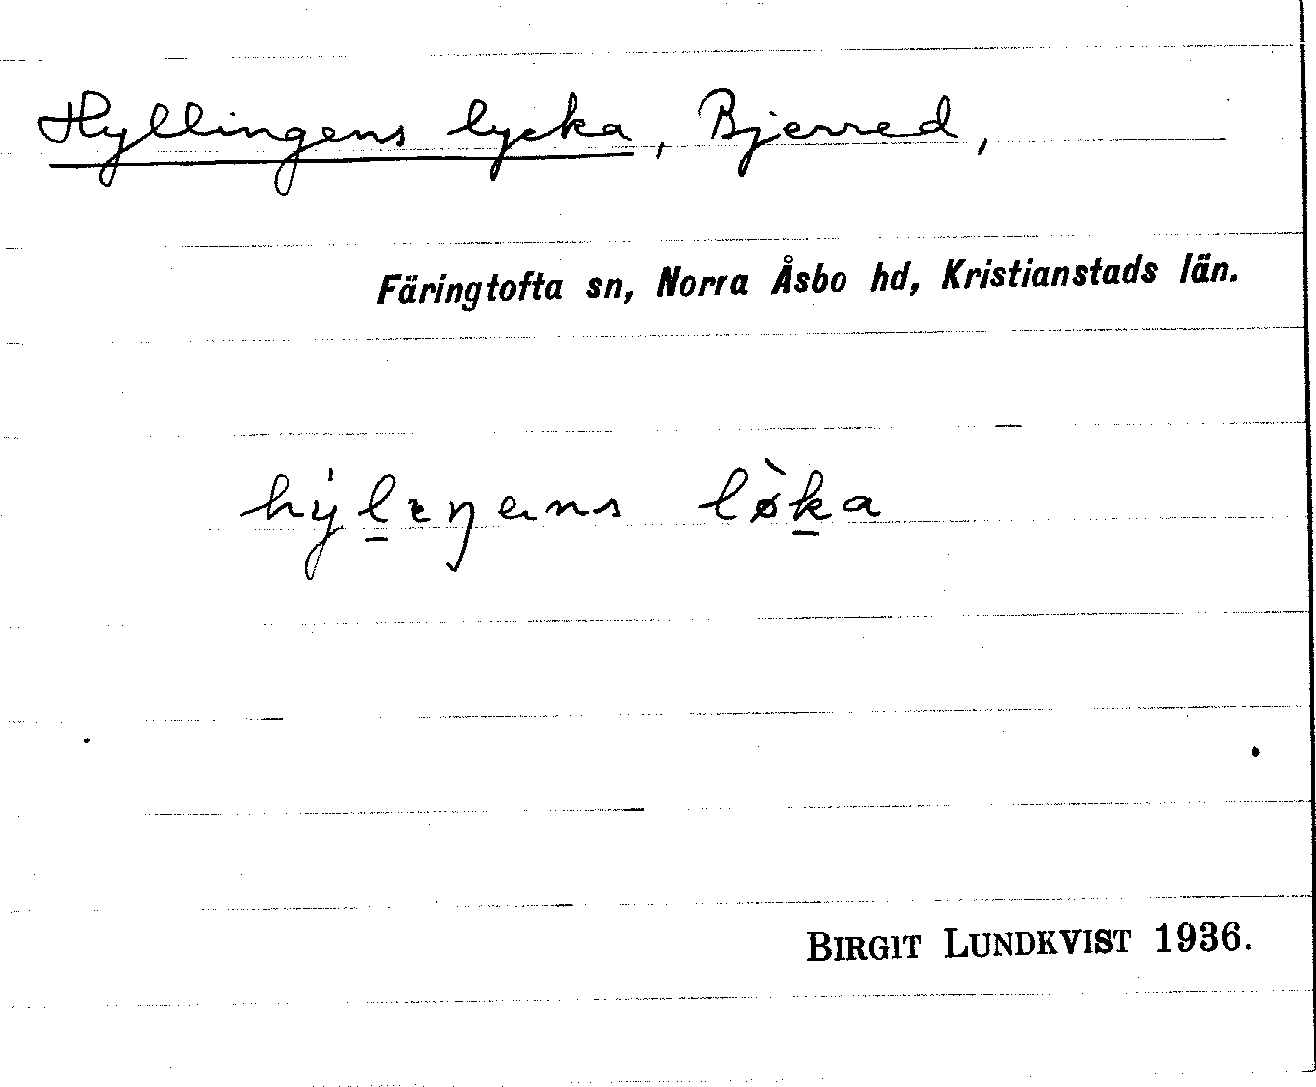 Hyllingens lycka, Bjerred,
Färingtofta sn, Norra Åsbo hd, Kristianstads län.
hýl̲ɪŋans lø̀k̲a
BIRGIT LUNDKVIST 1936.